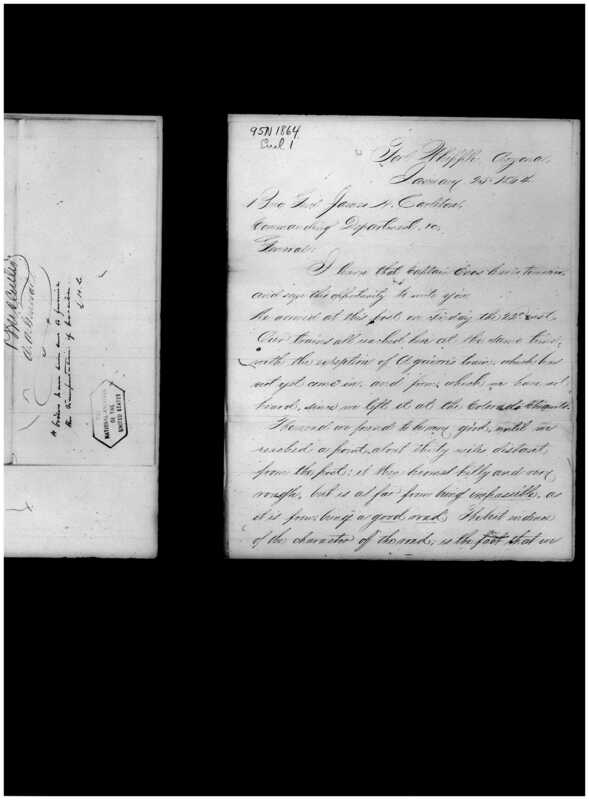 95N 1864
Encl 1
Fort Whipple, Arizona.
January 24th 1864.
Brig Genl James H. Carleton,
Commanding Department, &c,
General:
I learn that Captain leaves tomorrow
and seize this opportunity to write you.
We arrived at this post on Friday the 22d inst.
Our trains all reached here at the same time,
with the exception of train, which has
not yet come in, and from which we have not
heard, since we left it at the Colorado Chiquito.
The road we found to be very good, until we
reached a point, about thirty miles distant,
from the post: it then becomes hilly and very
rough, but is as far from being impassible, as
it is from being a good road. The best evidence
of the character of the road, is the fact that we
NATIONAL ARCHIVES
OF THE
UNITED STATES